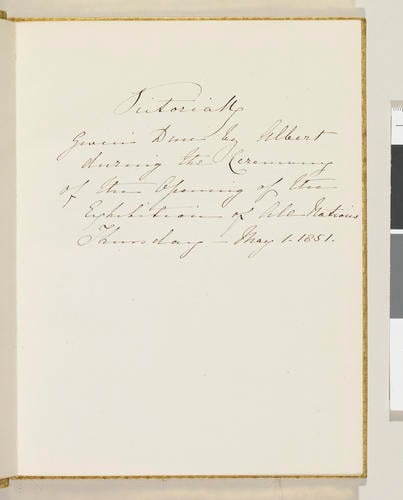 Victoria R
Given Dome by Albert
during the Ceremony
of the Opening of the
Exhibition of All Nations
Thursday - May 1. 1851.